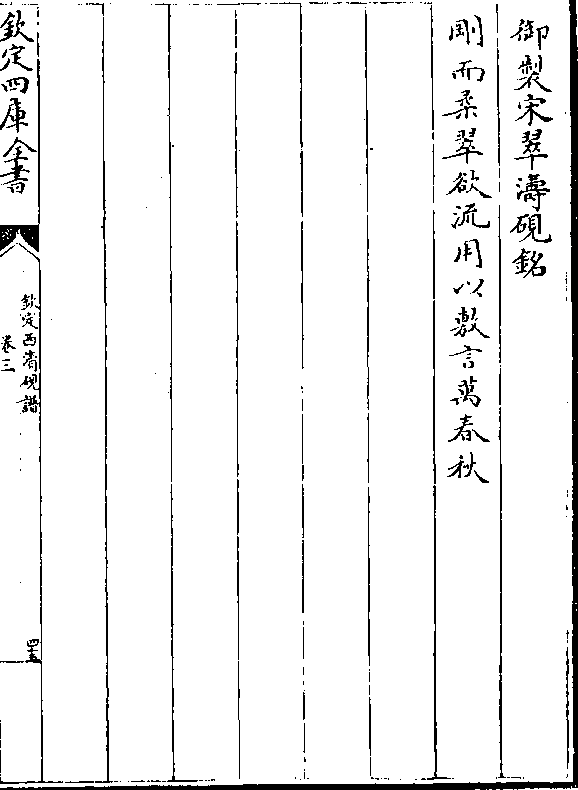 御製宋翠濤硯銘
剛而柔翠欲流用以敷言萬春秋
欽定四庫全書
欽定西清硯譜
卷三
四十五